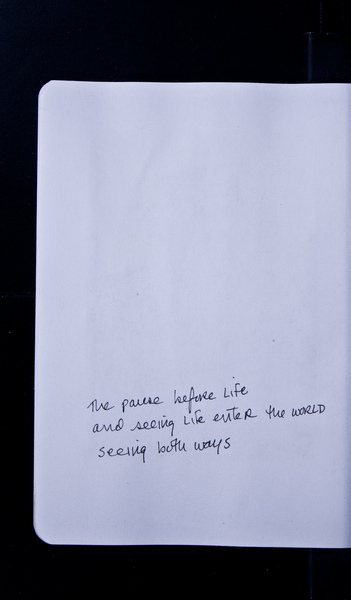 The pause before Life
and seeing Life enter the WORLD
seeing both ways